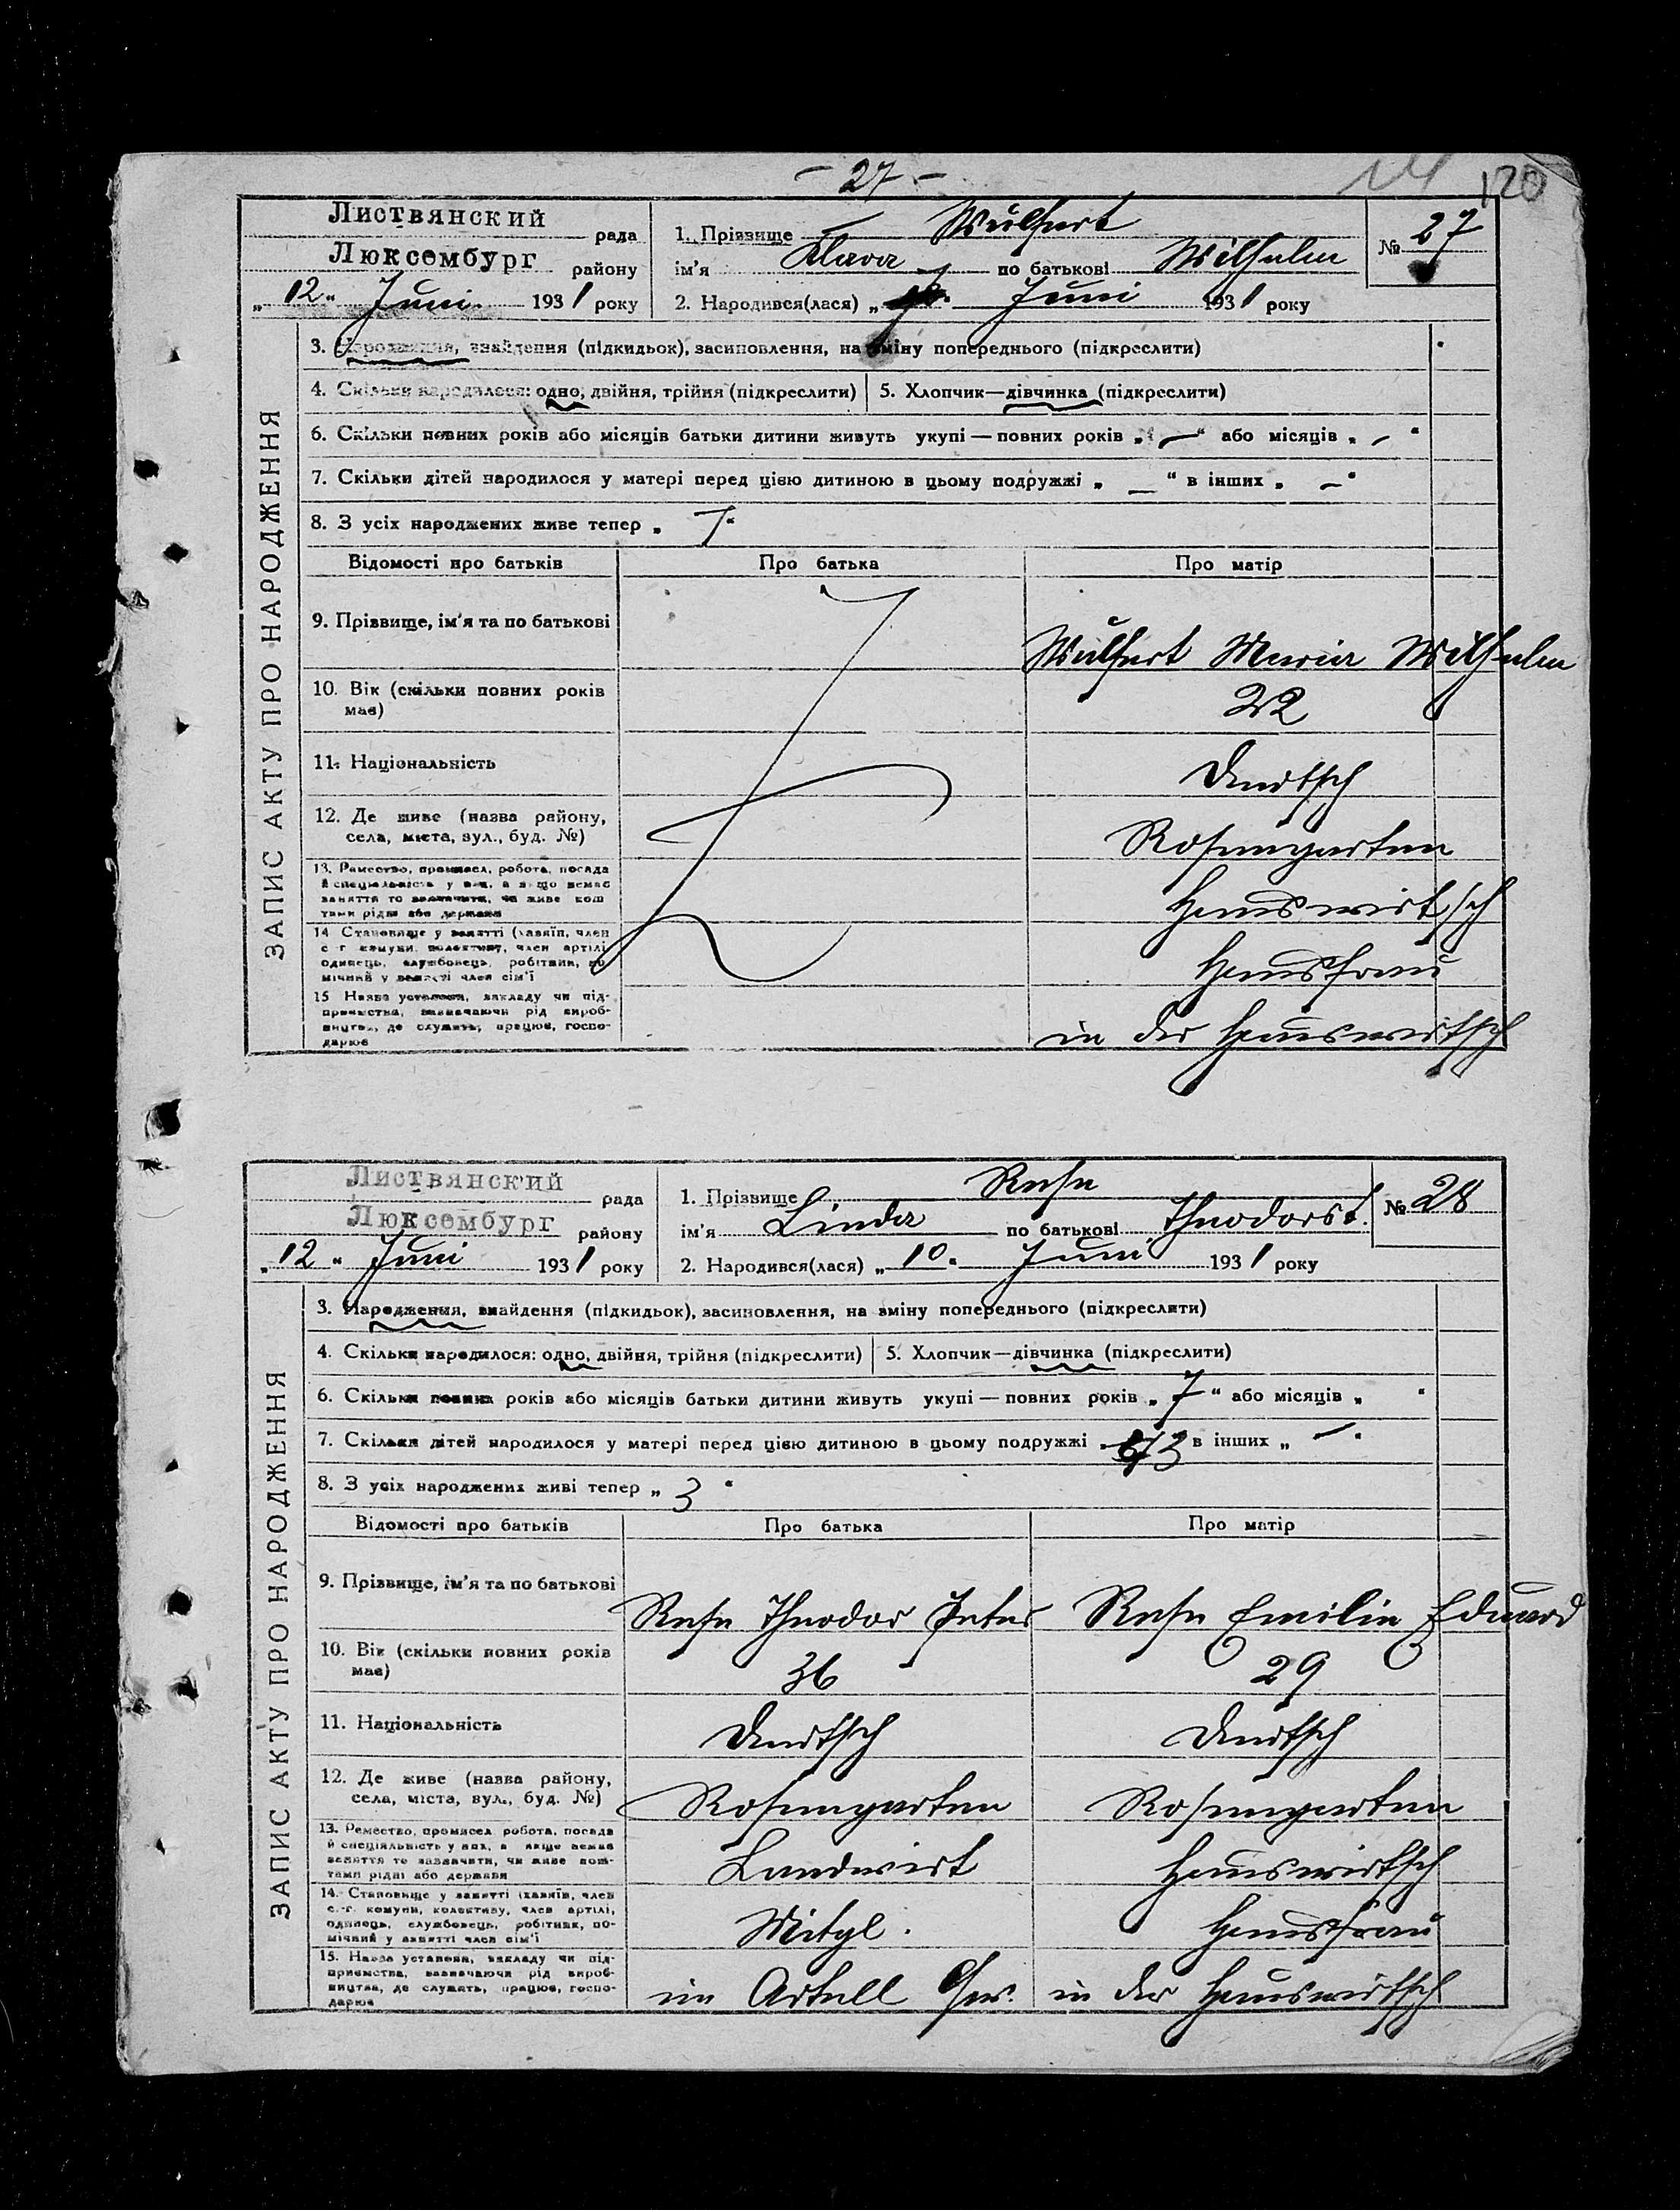 - 27 -
120
Листвянский рада
Люксембург району
„12“ Juni 1931 року
1. Прізвище Wülfert
ім'я Klara по батькові Wilhelm
2. Народився(лася) „ Juni 1931 року
№ 27
ЗАПИС АКТУ ПРО НАРОДЖЕННЯ
3. Народження, знайдення (підкидьок), засиновлення, на зміну попереднього (підкреслити)
4. Скільки народилося: одно, двійня, трійня (підкреслити) 5. Хлопчик—дівчинка (підкреслити)
6. Скільки повних років або місяців батьки дитини живуть укупі — повних років „ — “ або місяців „ — “
7. Скільки дітей народилося у матері перед цією дитиною в цьому подружжі „ — “ в інших „ — “
8. З усіх народжених живе тепер „
Відомості про батьків Про батька Про матір
9. Прізвище, ім'я та по батькові Wülfert Maria Wilhelm
10. Вік (скільки повних років 22
має)
11. Національність Deutsch
12. Де живе (назва району, Rosengarten
села, міста, вул., буд. №)
13. Ремество, промисел, робота, посада Hauswirtsch
й спеціяльність у них, а якщо немає
заняття то зазначити, чи живе кош-
тами рідні або держави
14. Становище у занятті (хазяїн, член Hausfrau
с.-г. комуни, колективу, член артілі,
одинець, службовець, робітник, по-
мічний у занятті член сім'ї
15. Назва установи, закладу чи під- in der Hauswirtsch
приємства, зазначаючи рід вироб-
ництва, де служить, працює, госпо-
дарює
Листвянский рада
Люксембург району
„12“ Juni 1931 року
1. Прізвище Rese
ім'я Linda по батькові Theodorst.
2. Народився(лася) „10“ Juni 1931 року
№ 28
ЗАПИС АКТУ ПРО НАРОДЖЕННЯ
3. Народження, знайдення (підкидьок), засиновлення, на зміну попереднього (підкреслити)
4. Скільки народилося: одно, двійня, трійня (підкреслити) 5. Хлопчик—дівчинка (підкреслити)
6. Скільки повних років або місяців батьки дитини живуть укупі — повних років „ 7 “ або місяців „ “
7. Скільки дітей народилося у матері перед цією дитиною в цьому подружжі „ 3 в інших „ — “
8. З усіх народжених живі тепер „ 3 “
Відомості про батьків Про батька Про матір
9. Прізвище, ім'я та по батькові Rese Theodor Peter Rese Emilie Eduard
10. Вік (скільки повних років 36 29
має)
11. Національність Deutsch Deutsch
12. Де живе (назва району, Rosengarten Rosengarten
села, міста, вул., буд. №)
13. Ремество, промисел робота, посада Landwirt Hauswirtsch
й спеціяльність у них, а якщо немає
заняття то зазначити, чи живе кош-
тами рідні або держави
14. Становище у занятті (хазяїн, член Mitgl. Hausfrau
с.-г. комуни, колективу, член артілі,
одинець, службовець, робітник, по-
мічний у занятті член сім'ї
15. Назва установи, закладу чи під- im Artell in der Hauswirtsch
приємства, зазначаючи рід вироб-
ництва, де служить, працює, госпо-
дарює